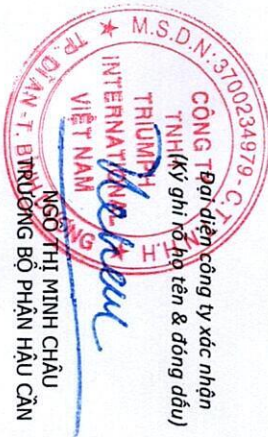 Đại diện công ty xác nhận
(Ký ghi rõ họ tên & đóng dấu)
M.S.D.N: 3700234979 - C.T.
T.N.H.H
CÔNG TY
TNHH
TRIUMPH
INTERNATIONAL
VIỆT NAM
TP. DĨ AN - T. BÌNH DƯƠNG
NGÔ THỊ MINH CHÂU
TRƯỞNG BỘ PHẬN HẬU CẦN